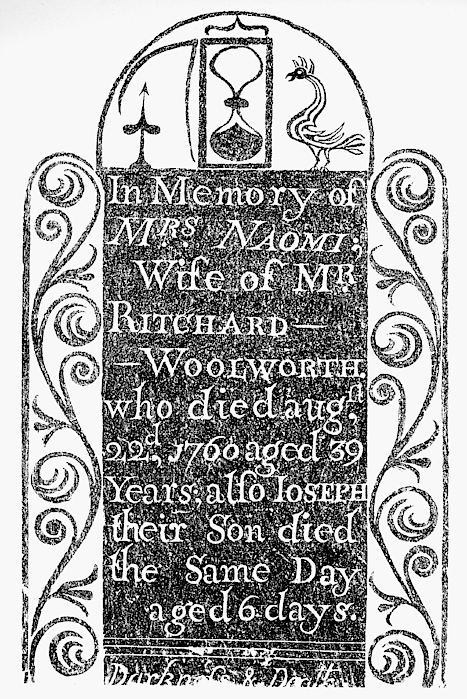 In Memory of
MRS NAOMI;
Wife of MR
RITCHARD—
—WOOLWORTH.
who died augst
22d, 1760 aged 39
Years; alſo IOSEPH
their Son died
the Same Day
aged 6 days.
Darkneſs &